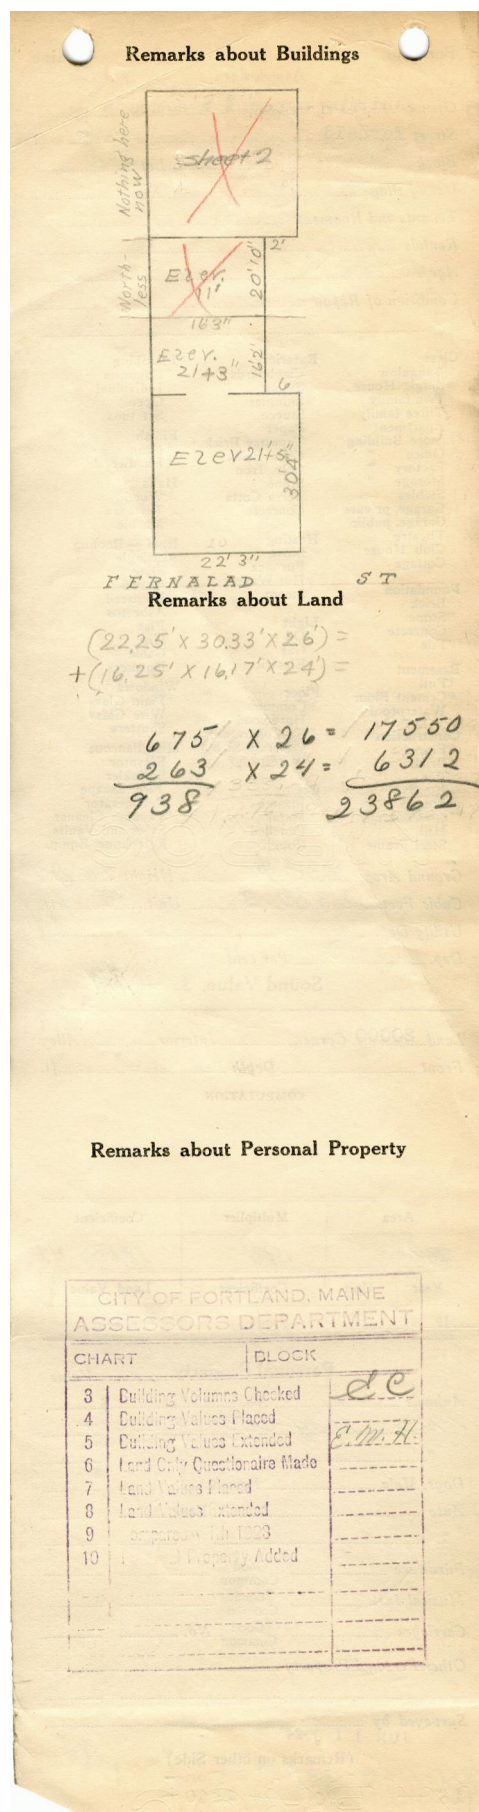 Remarks about Buildings
Nothing here
now
sheet 2
2'
Worth-
less
Elev.
11'
20'10"
16'3"
Elev.
21+3"
16'2"
6
Elev 21'+5"
30'4"
22' 3"
FERNALAD ST
Remarks about Land
(22,25' X 30.33' X 26') =
+(16,25' X 16,17' X 24') =
675 X 26 = 17550
263 X 24 = 6312
938 23862
Remarks about Personal Property
CITY OF PORTLAND, MAINE
ASSESSORS DEPARTMENT
CHART BLOCK
3 Building Volumes Checked
4 Building Values Placed
5 Building Values Extended E.M.H.
6 Land Only Questionaire Made
7 Land Values Placed
8 Land Values Extended
9
10 Property Added